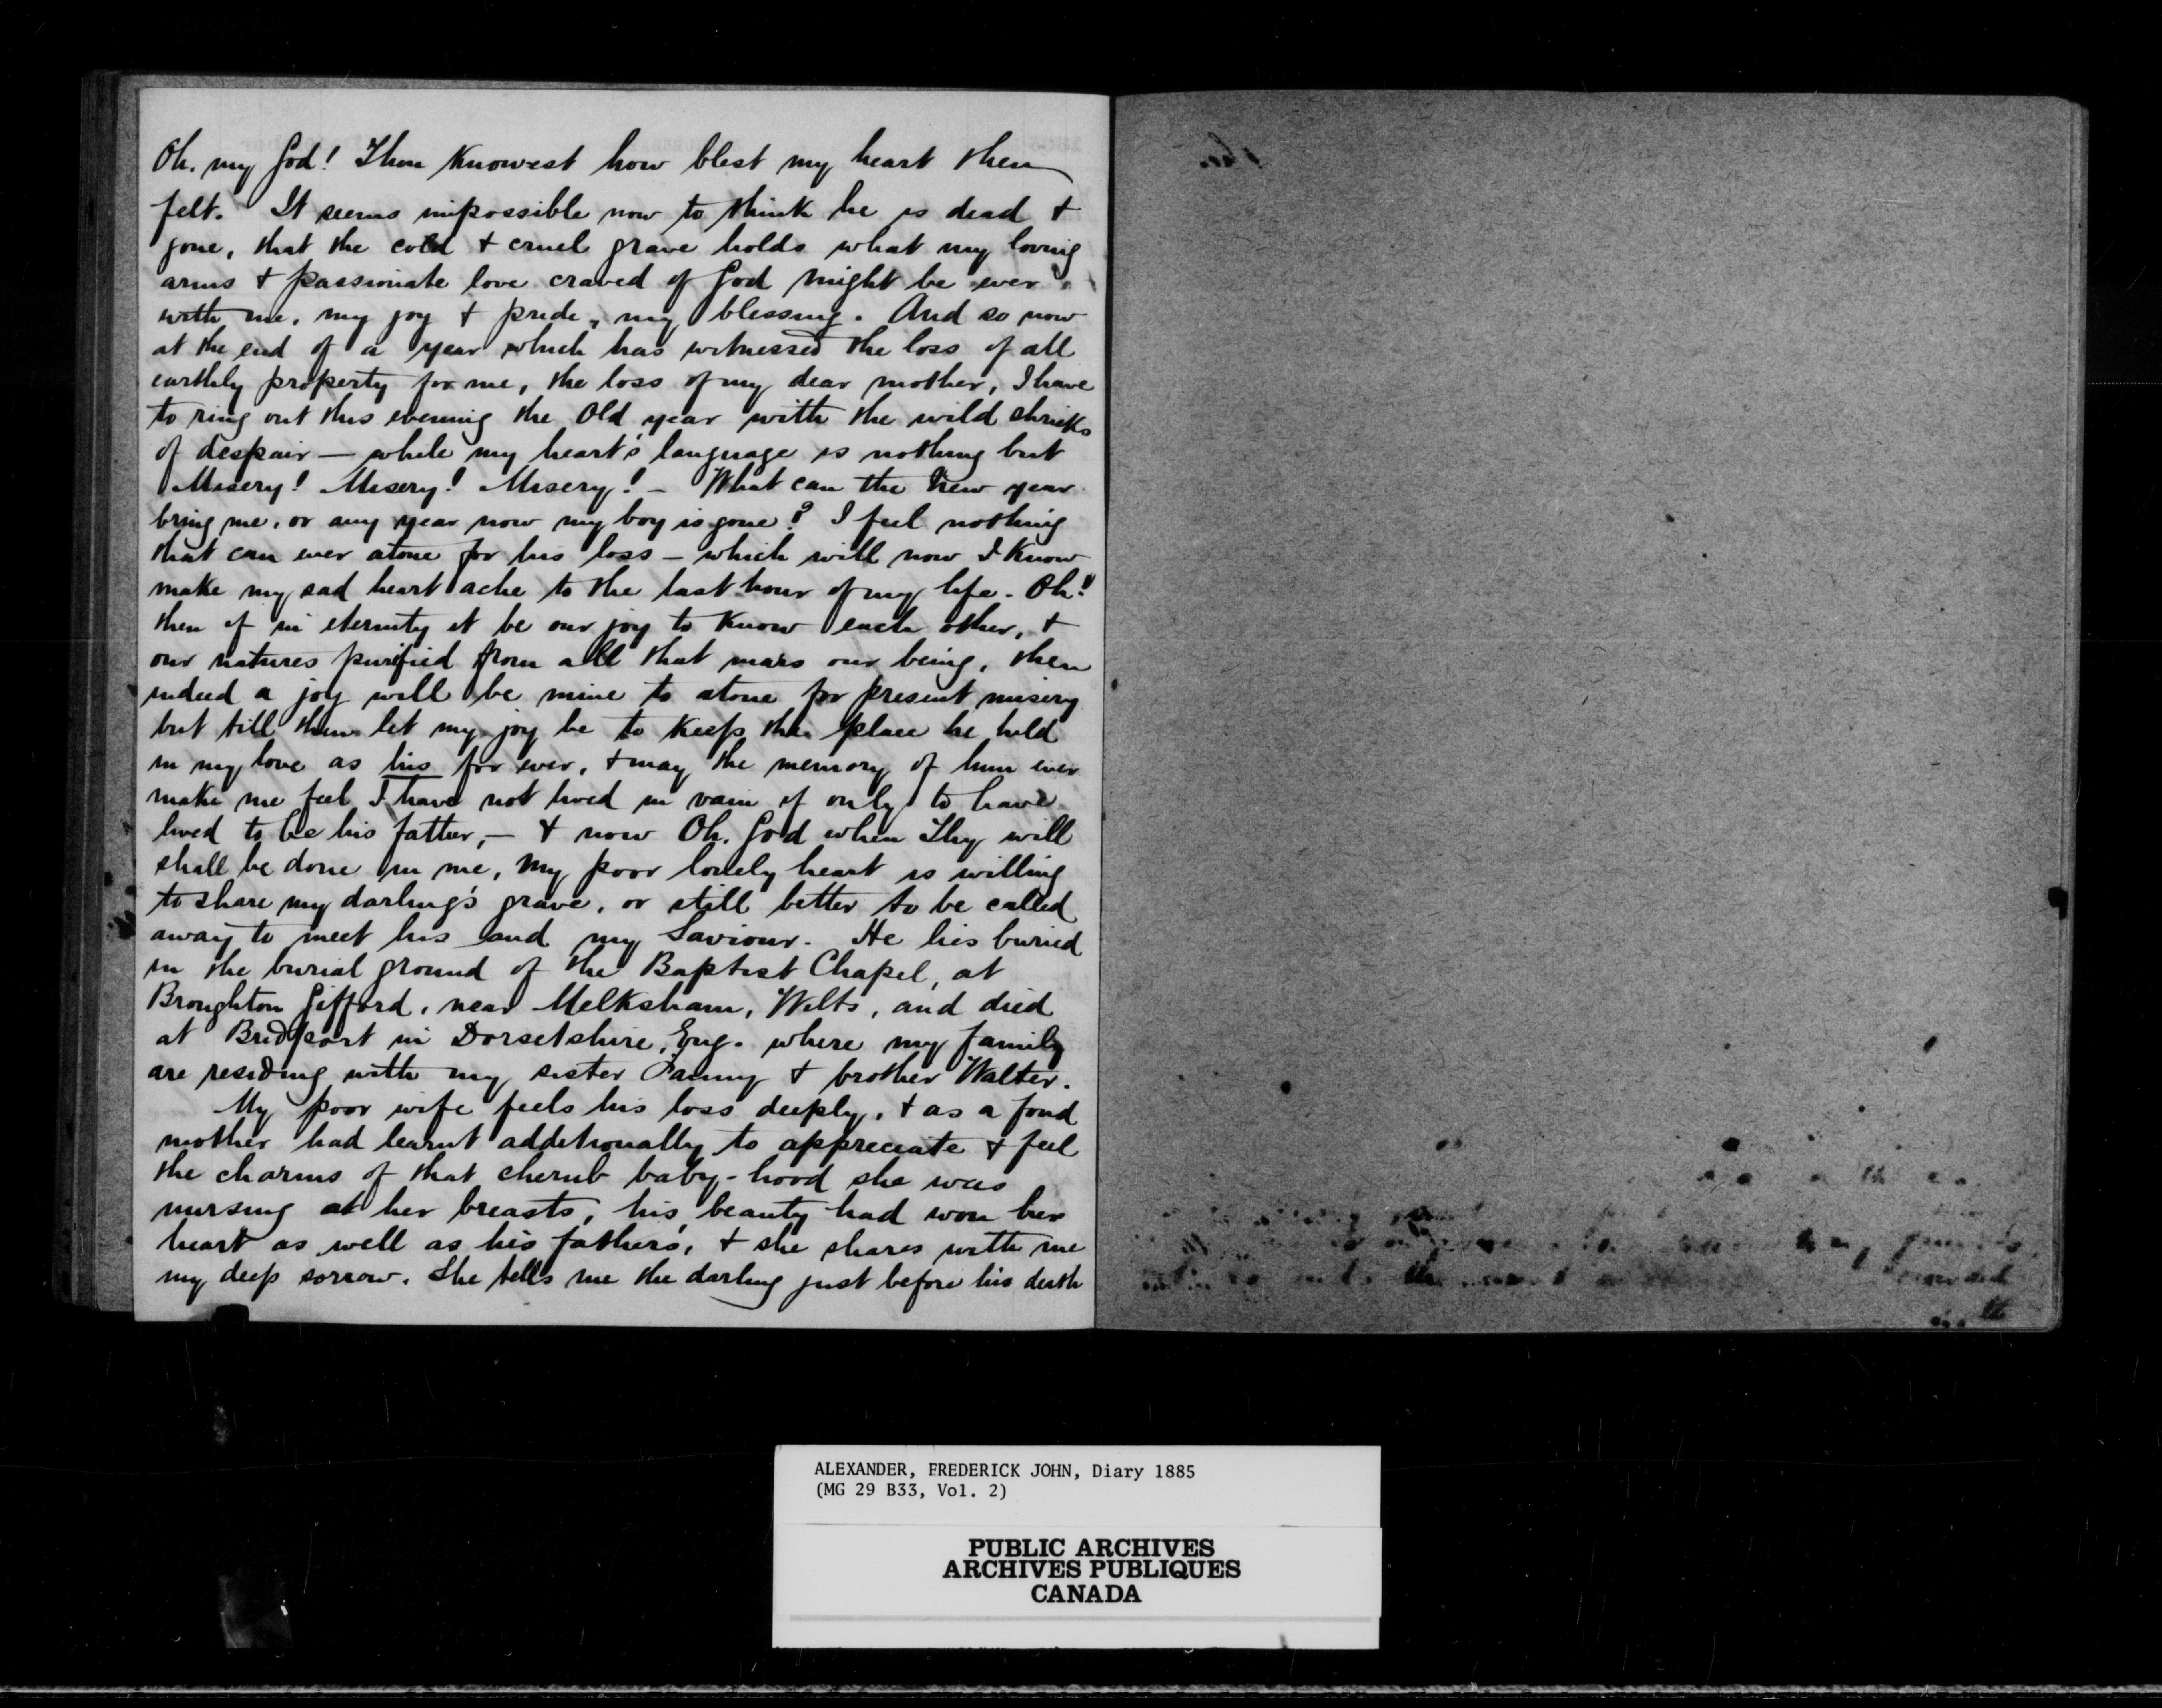 Oh. my God! Thou Knowest how blest my heart then
felt. It seems impossible now to think he is dead +
gone, that the cold + cruel grave holds what my loving
arms + passionate love craved of God might be ever
with me, my joy + pride, my blessing. And so now
at the end of a year which has witnessed the loss of all
earthly property for me, the loss of my dear mother, I have
to ring out this evening the Old year with the wild shrieks
of despair — while my heart's language is nothing but
Misery! Misery! Misery! — What can the New year
bring me, or any year now my boy is gone? I feel nothing
that can ever atone for his loss — which will now I Know
make my sad heart ache to the last hour of my life. Oh!
then if in eternity it be our joy to Know each other, +
our natures purified from all that mars our being, then
indeed a joy will be mine to atone for present misery
but till then let my joy be to Keep the place he held
in my love as his for ever, + may the memory of him ever
make me feel I have not lived in vain if only to have
lived to be his father, — + now Oh. God when Thy will
shall be done in me, my poor lonely heart is willing
to share my darling's grave, or still better to be called
away to meet his and my Saviour. He lies buried
in the burial ground of the Baptist Chapel, at
Broughton Gifford, near Melksham, Wilts, and died
at Bridport in Dorsetshire, Eng. where my family
are residing with my sister Fanny + brother Walter.
My poor wife feels his loss deeply, + as a fond
mother had learnt additionally to appreciate + feel
the charms of that cherub baby-hood she was
nursing at her breasts, his beauty had won her
heart as well as his father's, + she shares with me
my deep sorrow. She tells me the darling just before his death
ALEXANDER, FREDERICK JOHN, Diary 1885
(MG 29 B33, Vol. 2)
PUBLIC ARCHIVES
ARCHIVES PUBLIQUES
CANADA